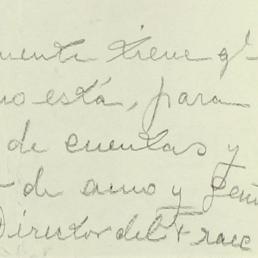 mente tiene qe
no está, para
de cuentas y
de amo y Señ
Director del + race